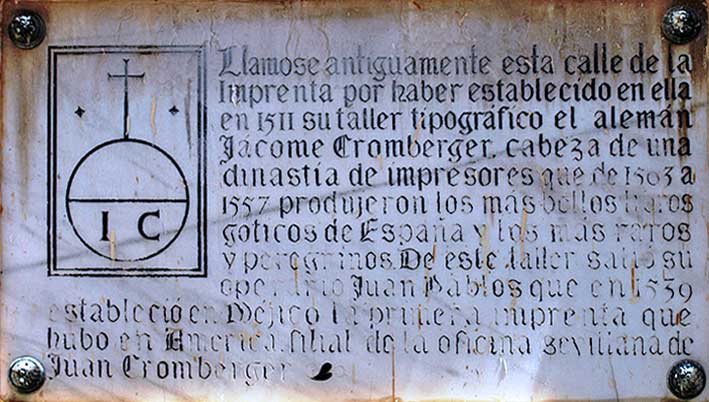 Llamose antiguamente esta calle de la
Imprenta por haber establecido en ella
en 1511 su taller tipográfico el alemán
Jácome Cromberger, cabeza de una
dinastia de impresores que de 1503 a
1557 produjeron los más bellos libros
goticos de España y los más raros
y peregrinos. De este taller salió su
operario Juan Pablos que en 1539
estableció en Méjico la primera imprenta que
hubo en America filial de la oficina sevillana de
Juan Cromberger
I C